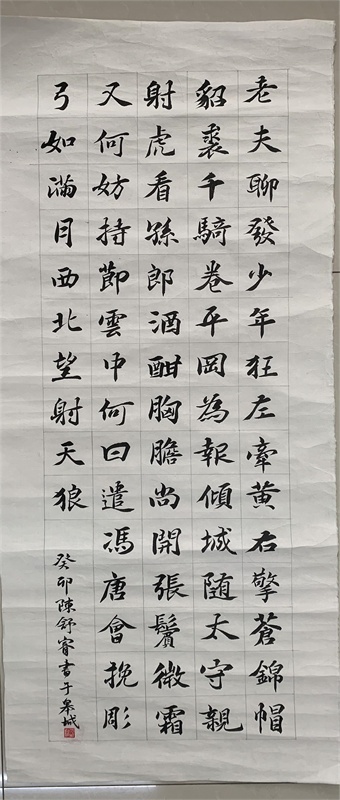 老夫聊發少年狂左牽黄右擎蒼錦帽
貂裘千騎卷平岡為報傾城随太守親
射虎看孫郎酒酣胸膽尚開張鬢微霜
又何妨持節雲中何日遣馮唐會挽彫
弓如滿月西北望射天狼
癸卯陳舒睿書于皋城